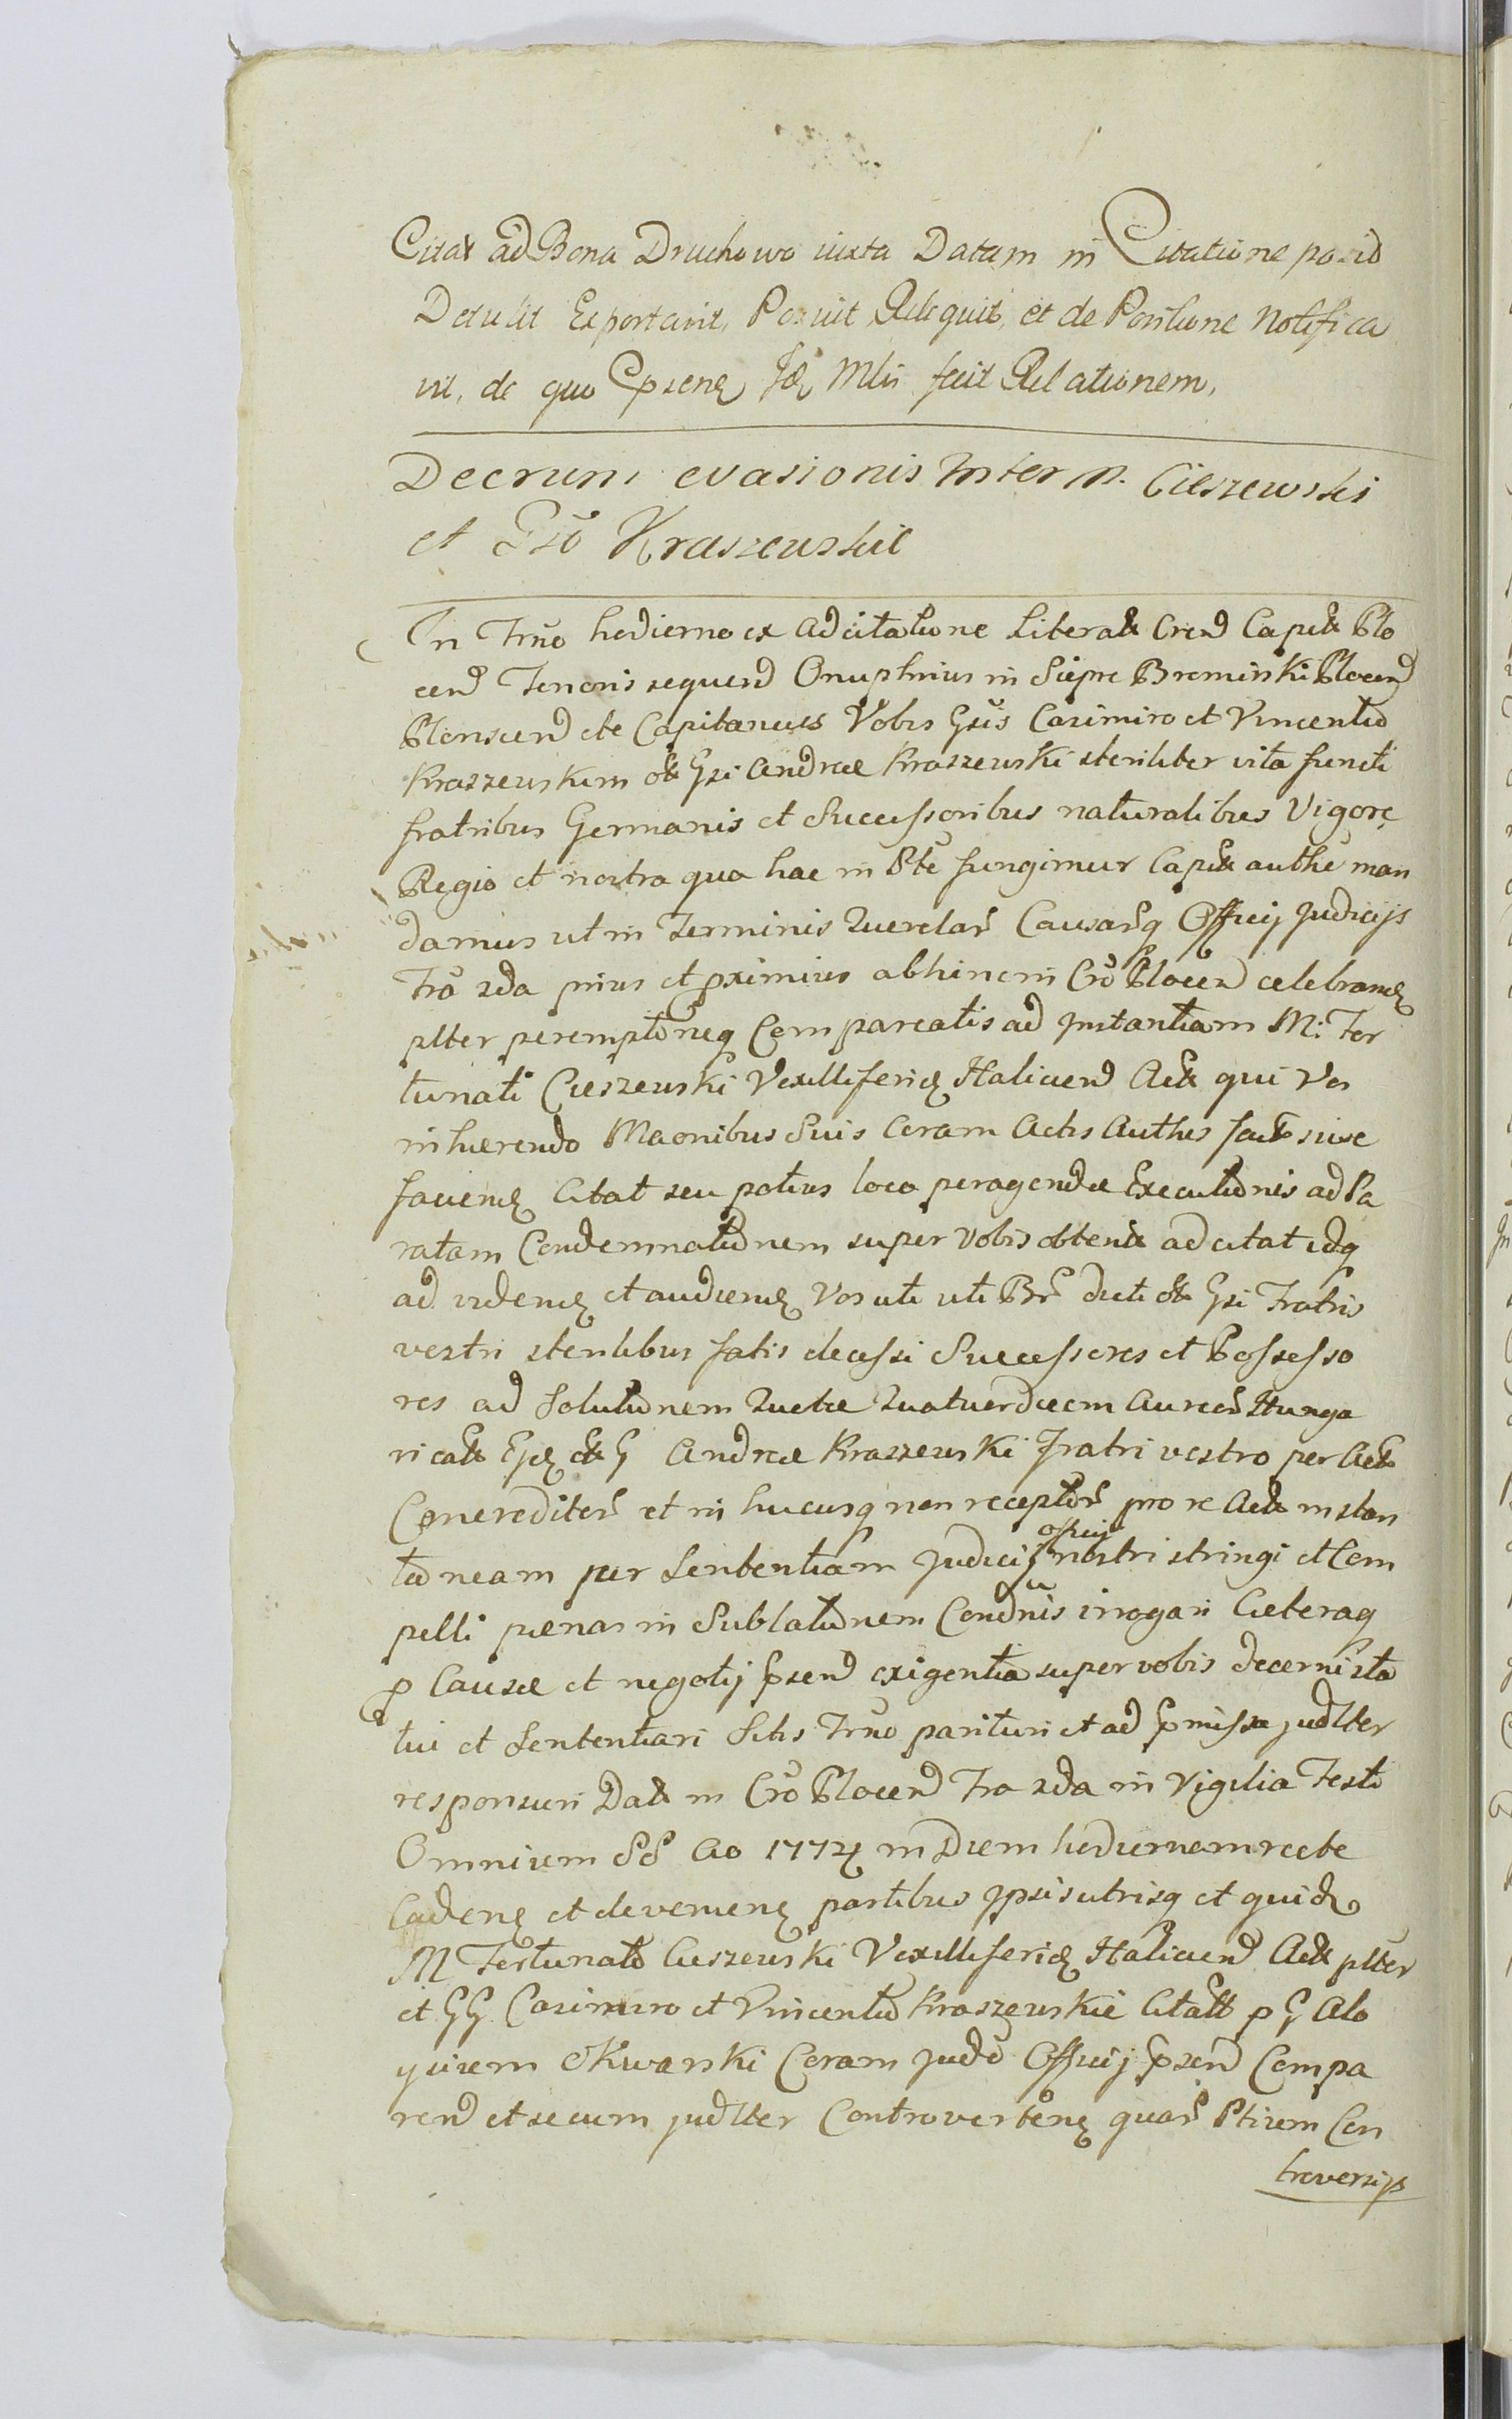 Citat ad Bona Druchowo iuxta Datam in Citatione posid
Detulit Exportavit, Posuit Reliquit, et de Positione Notifica
vit, de quo Eprens Jdz Mlis fecit Relationem,
Decrum evasionis Inter M. Cieszewski
et Gsō Kraszewskie
In Trnō hodierno ex adcitatione Literat Crend Capit Plo
cend Tenoris sequend Onuphrius in Sierpc Bromirski Plocend
Plonscend etc Capitaneus Vobis Gsis Casimiro et Vincentio
Kraszewskim ol Gsi Andreæ Kraszewski steriliter vita functi
fratribus Germanis et Successoribus naturalibus Vigore
Regio et nostra qua hac in Pte fungimur Capit authe man
damus ut in Terminis Querelar Causarq Officij Judicijs
Fra 2da prius et pximius abhinc in Crō Plocen celebrand
plter peremptōneq Compareatis ad Instantiam M: For
tunati Cieszewski Vexilliferid Halicend Act qui Vos
inhærendo Maonibus Suis Coram Actis Authis fact suæ
faciend Citat seu potius loco peragendæ Executionis ad Pa
ratam Condemnationem super vobis obtent adcitat idq
ad videnđ et audienđ Vos uti uti Br dicti ol Gsi Fratris
vestri sterilibus fatis decessi Successores et Possesso
res ad Solutionem Quotæ Quatuordecem Aureor Hunga
ricat Ejd ol G Andreæ Kraszewski Fratri vestro per Act
Concreditor et in hucusq non receptor pro re Act instan
tōneam per Sententiam Judicij officij nostri stringi et Com
pelli pœnas in Sublationem Condnis irrogari Cæteraq
p Causæ et negotij psend exigentia super vobis decerni sta
tui et Sententiari Sitis Trnō parituri et ad pmissa judlter
responsuri Dat in Crō Plocend Fra 2da in Vigilia Festi
Omnium SS Ao 1774 in Diem hodiernam recte
Cadenđ et devenienđ partibus Ipsis utrisq et quid
M Fortunato Cieszewski Vexilliferid Halicend Act plter
et GG Casimiro et Vincentio Kraszewskie Citatt p G Alo
ysium Skwarski Coram Judō Officij psend Compa
rend et secum judlter Controvertend quar Ptium Con
troversijs